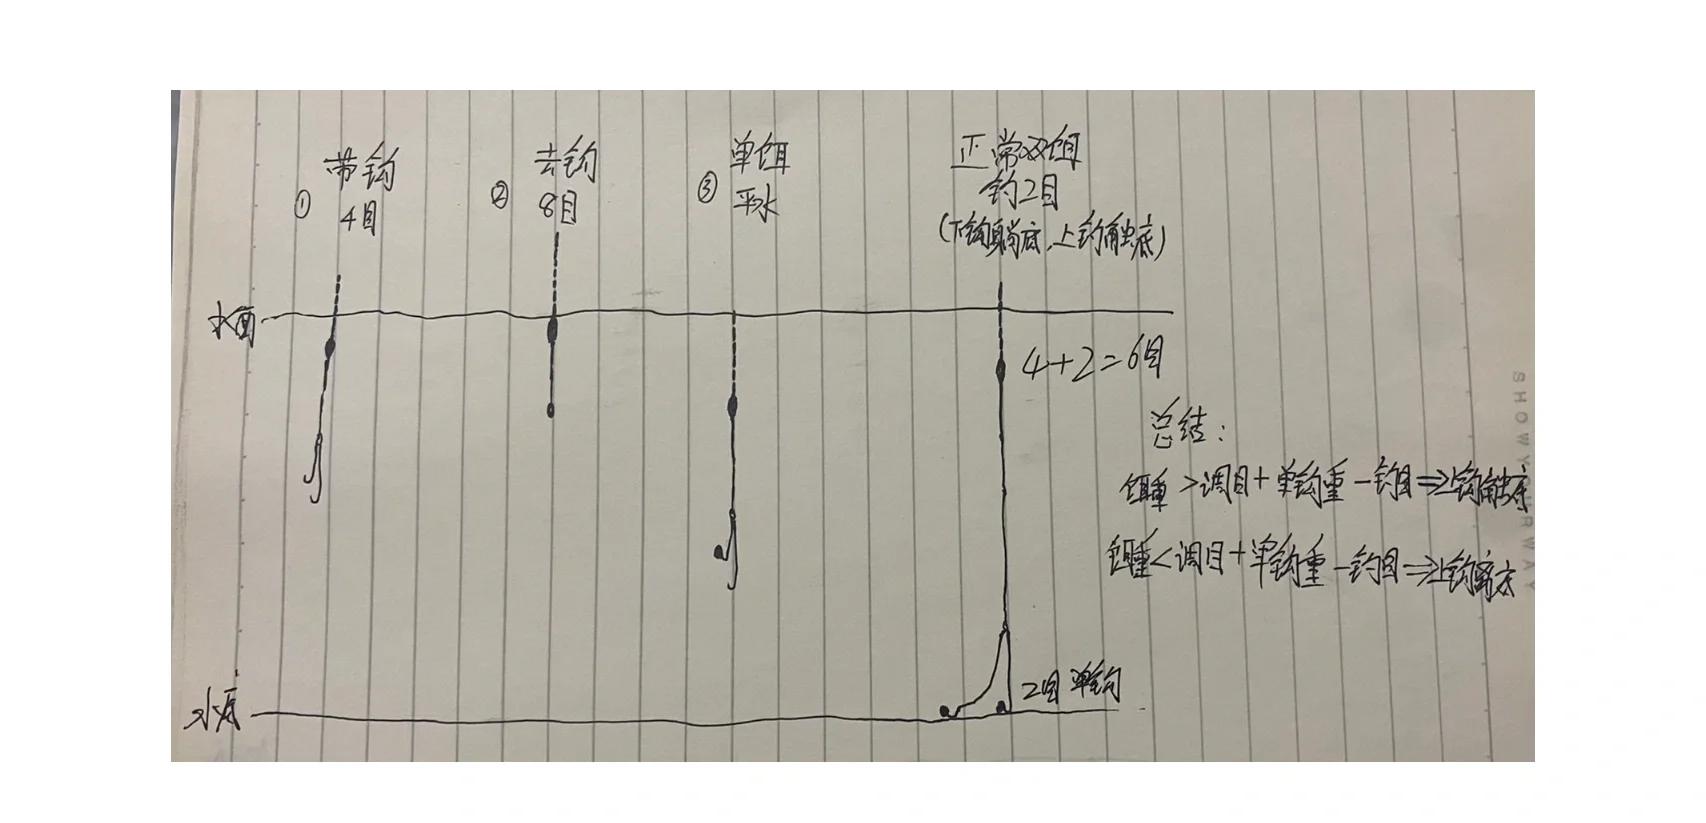 ① 带钩
4目
② 去钩
8目
③ 单饵
平水
正常双饵
钓2目
(下钩躺底,上钩触底)
水面
4+2=6目
总结:
饵重>调目+单钩重-钓目⇒上钩触底
饵重<调目+单钩重-钓目⇒上钩离底
2目单钩
水底
SHOWYOURWAY